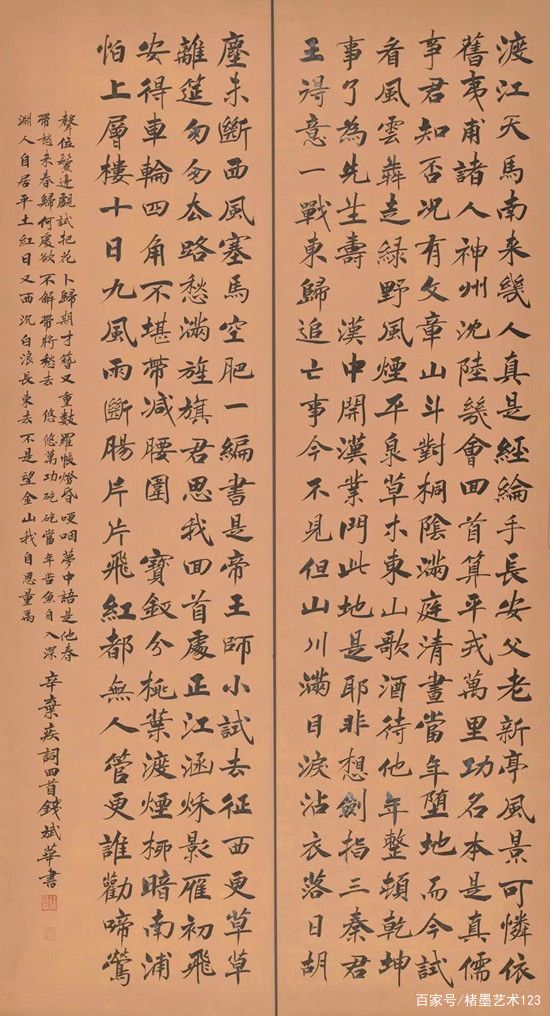 渡江天馬南来幾人真是經綸手長安父老新亭風景可憐依
舊夷甫諸人神州沈陸幾會回首算平戎萬里功名本是真儒
事君知否况有文章山斗對桐陰滿庭清晝當年墮地而今試
看風雲犇走綠野風煙平泉草木東山歌酒待他年整頓乾坤
事了為先生壽 漢中開漢業問此地是耶非想劍指三秦君
王得意一戰東歸追亡事今不見但山川滿目淚沾衣落日胡
塵未斷西風塞馬空肥一編書是帝王師小試去征西更草草
離筵匆匆去路愁滿旌旗君思我回首處正江涵秋影雁初飛
安得車輪四角不堪帶減腰圍 寶釵分桃葉渡煙柳暗南浦
怕上層樓十日九風雨斷腸片片飛紅都無人管更誰勸啼鶯
聲住鬢邊覷試把花卜歸期才簪又重數羅帳燈昏哽咽夢中語是他春
帶愁来春歸何處却不解帶將愁去 悠悠萬功矻矻當年苦魚自入深
淵人自居平土紅日又西沉白浪長東去不是望金山我自思量禹
辛棄疾詞四首錢斌華書
百家号/楮墨艺术123